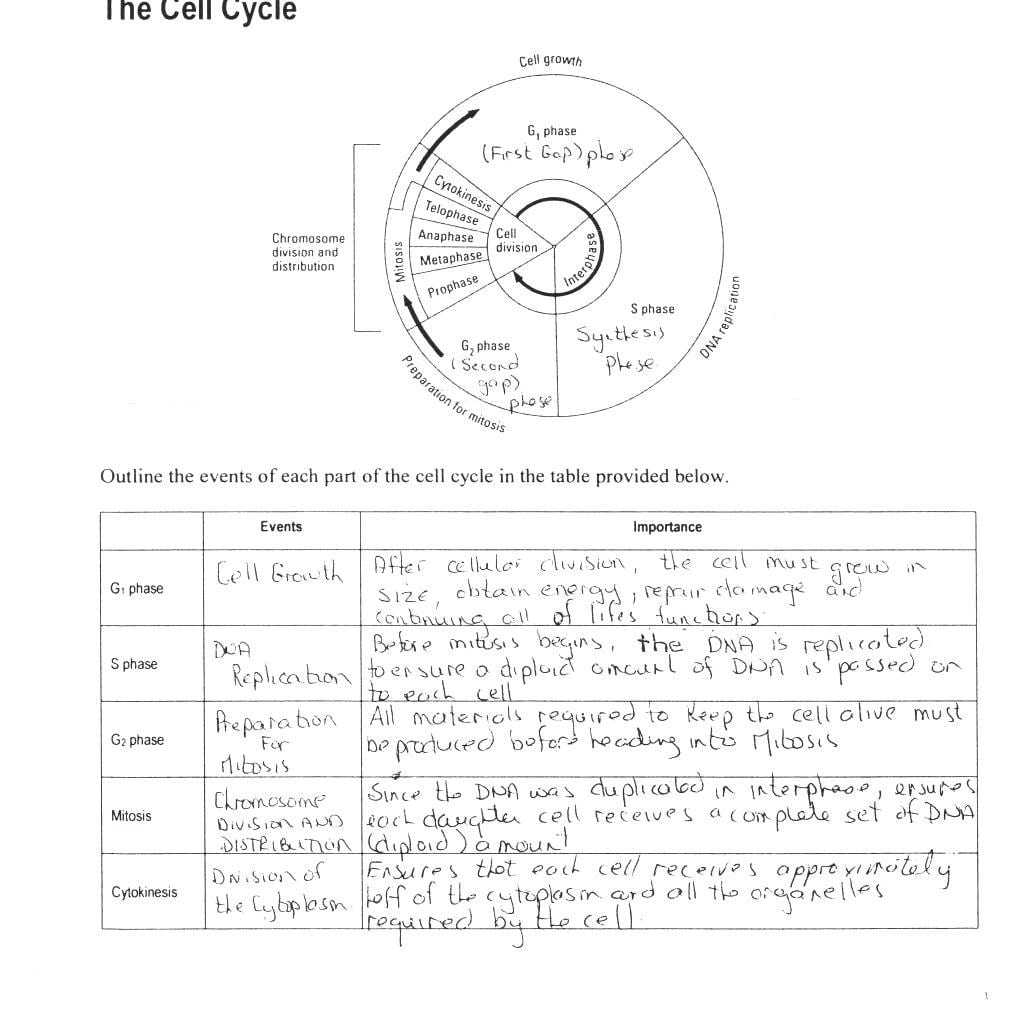 The Cell Cycle
Cell growth
G1 phase
(First Gap) phase
Cytokinesis
Telophase
Anaphase
Metaphase
Prophase
Cell
division
Interphase
Mitosis
Chromosome
division and
distribution
S phase
Synthesis
Phase
DNA replication
G2 phase
(Second
gap)
phase
Preparation for mitosis
Outline the events of each part of the cell cycle in the table provided below.
Events
Importance
G1 phase
Cell Growth
After cellular division, the cell must grow in
size, obtain energy, repair damage and
continuing all of lifes functions.
S phase
DNA
Replication
Before mitosis begins, the DNA is replicated
to ensure a diploid amount of DNA is passed on
to each cell
G2 phase
Preparation
For
Mitosis
All materials required to keep the cell alive must
be produced before heading into Mitosis
Mitosis
Chromosome
DIVISION AND
DISTRIBUTION
Since the DNA was duplicated in interphase, ensures
each daughter cell receives a complete set of DNA
(diploid) amount
Cytokinesis
Division of
the Cytoplasm
Ensures that each cell receives approximately
half of the cytoplasm and all the organelles
required by the cell.
1